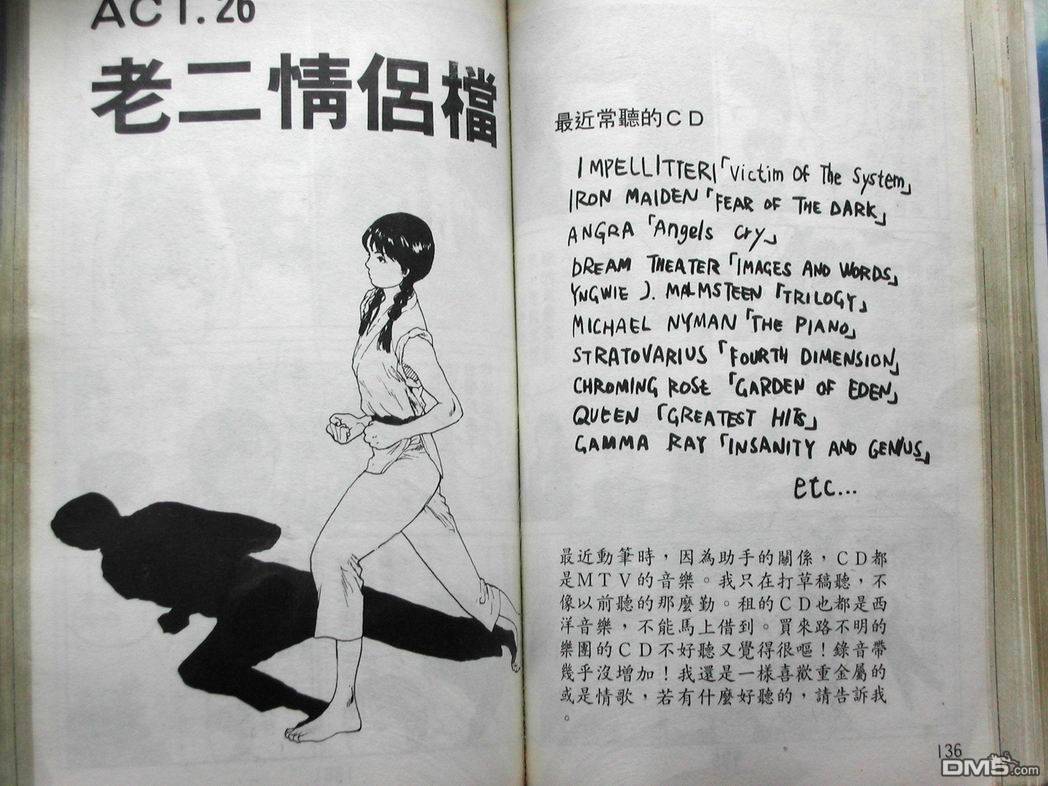 ACT.26
老二情侶檔
最近常聽的CD
IMPELLITTERI「Victim Of The System」
IRON MAIDEN「FEAR OF THE DARK」
ANGRA「Angels Cry」
DREAM THEATER「IMAGES AND WORDS」
YNGWIE J. MALMSTEEN「TRILOGY」
MICHAEL NYMAN「THE PIANO」
STRATOVARIUS「FOURTH DIMENSION」
CHROMING ROSE「GARDEN OF EDEN」
QUEEN「GREATEST HITS」
GAMMA RAY「INSANITY AND GENIUS」
etc...
最近動筆時，因為助手的關係，CD都
是MTV的音樂。我只在打草稿聽，不
像以前聽的那麼勤。租的CD也都是西
洋音樂，不能馬上借到。買來路不明的
樂團的CD不好聽又覺得很嘔！錄音帶
幾乎沒增加！我還是一樣喜歡重金屬的
或是情歌，若有什麼好聽的，請告訴我
。
136
DM5.com